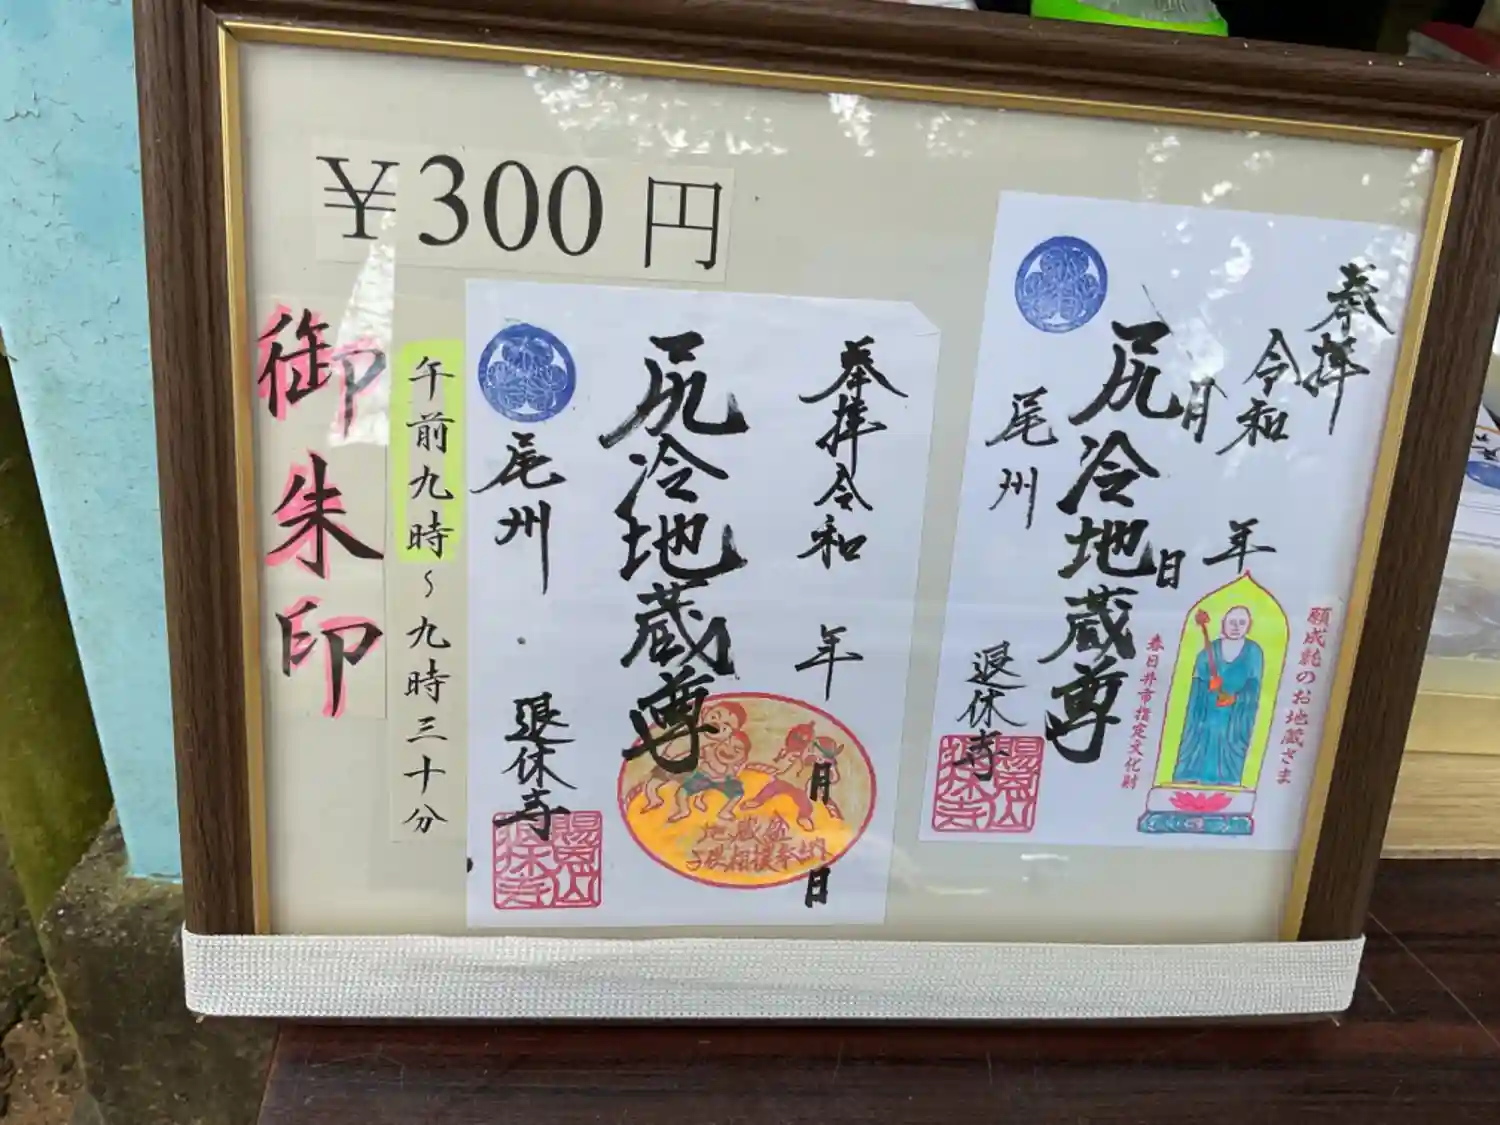 ¥300円
御朱印
午前九時～九時三十分
奉拝 令和 年 月 日
尻冷地蔵尊
尾州 退休寺
地蔵盆
子供相撲奉納
賜恩山
退休寺
奉拝
令和 年
月 日
尻冷地蔵尊
尾州 退休寺
のお地蔵さま
春日井市指定文化財
賜恩山
退休寺